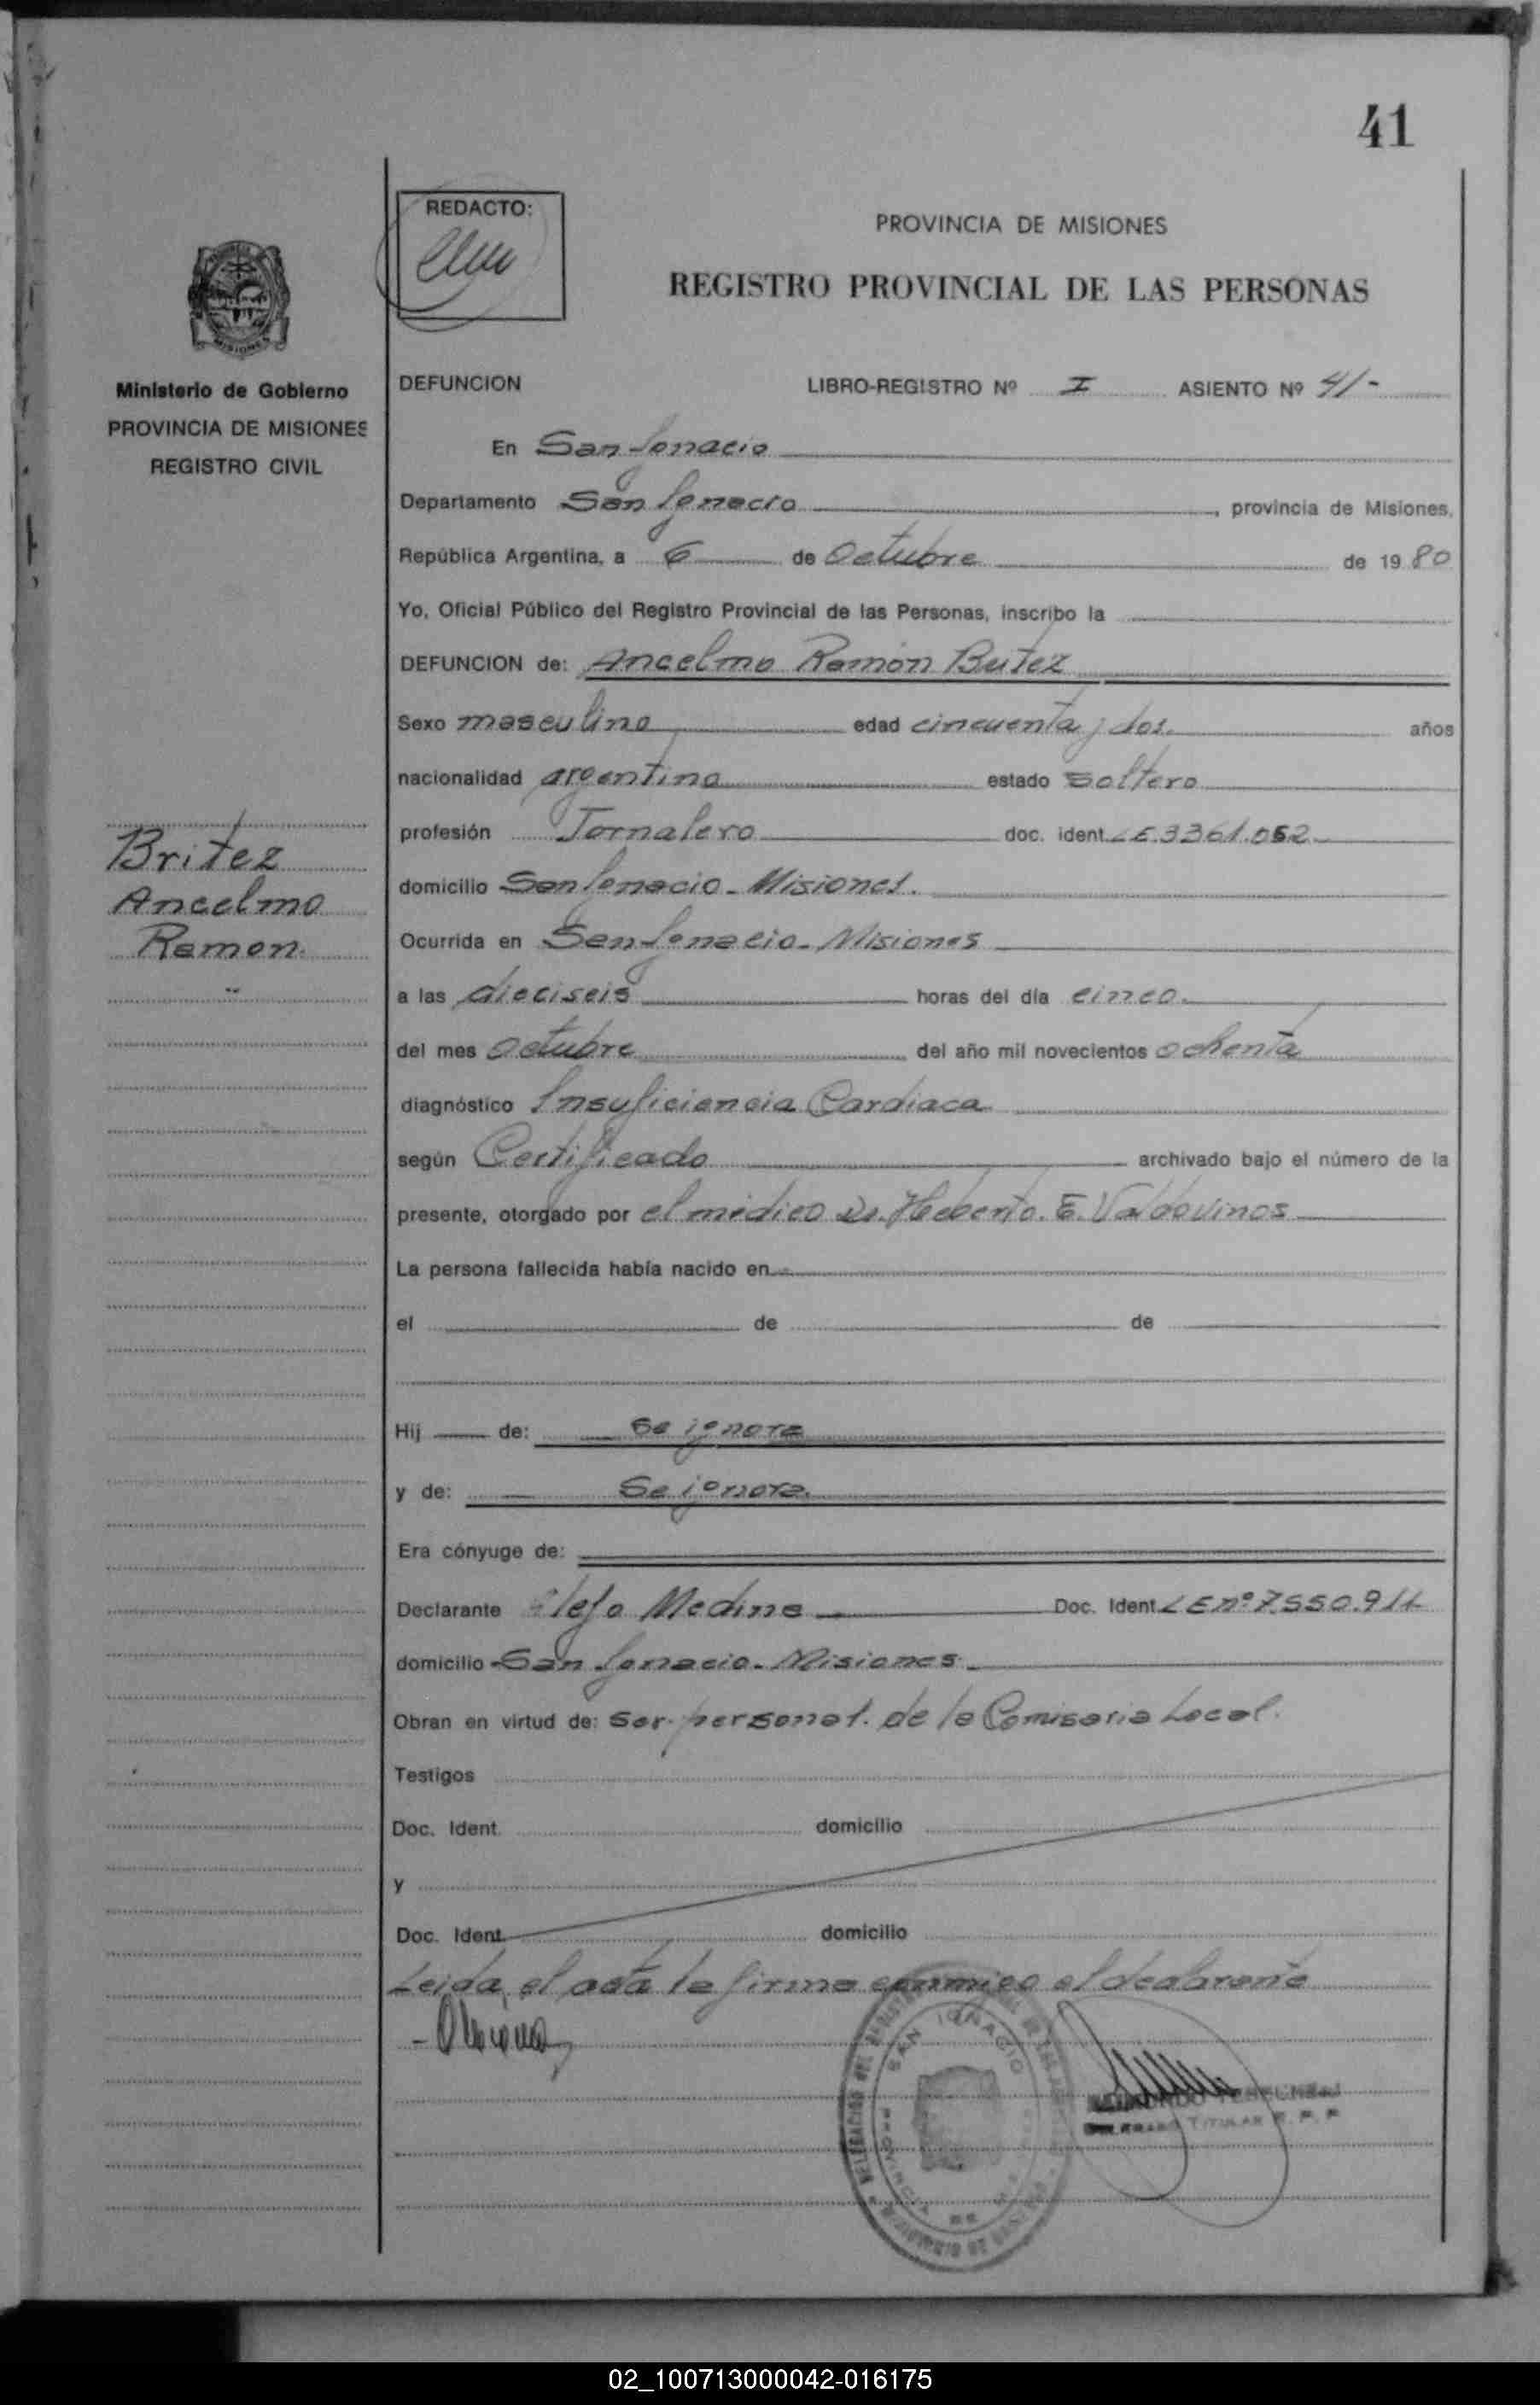 41
REDACTO:
PROVINCIA DE MISIONES
REGISTRO PROVINCIAL DE LAS PERSONAS
MISIONES
Ministerio de Gobierno
PROVINCIA DE MISIONES
REGISTRO CIVIL
DEFUNCION LIBRO-REGISTRO Nº I ASIENTO Nº 41-
En San Ignacio
Departamento San Ignacio, provincia de Misiones,
República Argentina, a 6 de Octubre de 1980
Yo, Oficial Público del Registro Provincial de las Personas, inscribo la
DEFUNCION de: Ancelmo Ramón Britez
Sexo masculino edad cincuenta y dos años
nacionalidad argentina estado Soltero
profesión Jornalero doc. ident. L.E. 3361.052
domicilio San Ignacio - Misiones.
Britez
Ancelmo
Ramon.
Ocurrida en San Ignacio - Misiones
a las dieciseis horas del día cinco.
del mes Octubre del año mil novecientos ochenta
diagnóstico Insuficiencia Cardiaca
según Certificado archivado bajo el número de la
presente, otorgado por el médico Dr. Heberto. E. Valdovinos
La persona fallecida había nacido en
el de de
Hij de: Se ignora
y de: Se ignora.
Era cónyuge de:
Declarante Medina Doc. Ident. L E nº 7.550.911
domicilio San Ignacio - Misiones
Obran en virtud de: Ser personal de la Comisaria Local.
Testigos
Doc. Ident. domicilio
y
Doc. Ident. domicilio
Leida el acta la firma conmigo el declarante
SAN IGNACIO
PROVINCIA DE
TITULAR R. P. P
02_100713000042-016175